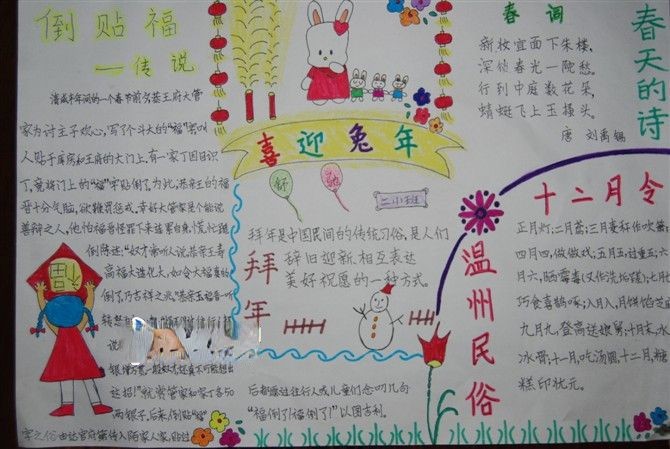 倒贴福
——传说
清咸丰年间的一个春节前夕恭王府大管
家为讨主子欢心,写了个斗大的"福"字叫
人贴于库房和王府的大门上,有一家丁因目识
丁,竟将门上的"福"字贴倒了,为此,恭亲王的福
晋十分气脑,欲鞭罚惩戒,幸好大管家是个能说
善辩之人,他怕福晋怪罪下来
倒陈述:"奴才常听人说,恭亲王寿
高福大造化大,如今大福真的
倒了,乃吉祥之兆,"恭亲王福晋一听
说
赏管家和家丁各50
两银子,后来,倒贴"福"
字之俗由达官府第传入百姓人家
后都愿过往行人或儿童们念叨几句
"福倒了!福倒了!"以图吉利。
福
喜迎兔年
舒
驰
拜年
拜年是中国民间的传统习俗,是人们
辞旧迎新、相互表达
美好祝愿的一种方式。
春词
新妆宜面下朱楼,
深锁春光一院愁,
行到中庭数花朵,
蜻蜓飞上玉搔头。
唐 刘禹锡
春天的诗
温州民俗
十二月令
正月灯;二月鸢;三月麦秆作吹箫;
四月四,做做戏;五月五,过重五;六
月六,晒霉毒
巧食喜鹊啄;八月八,月饼馅芝
九月九,登高送娘舅;十月末,水
冰骨;十一月,吃汤圆;十二月,糖
糕印状元。